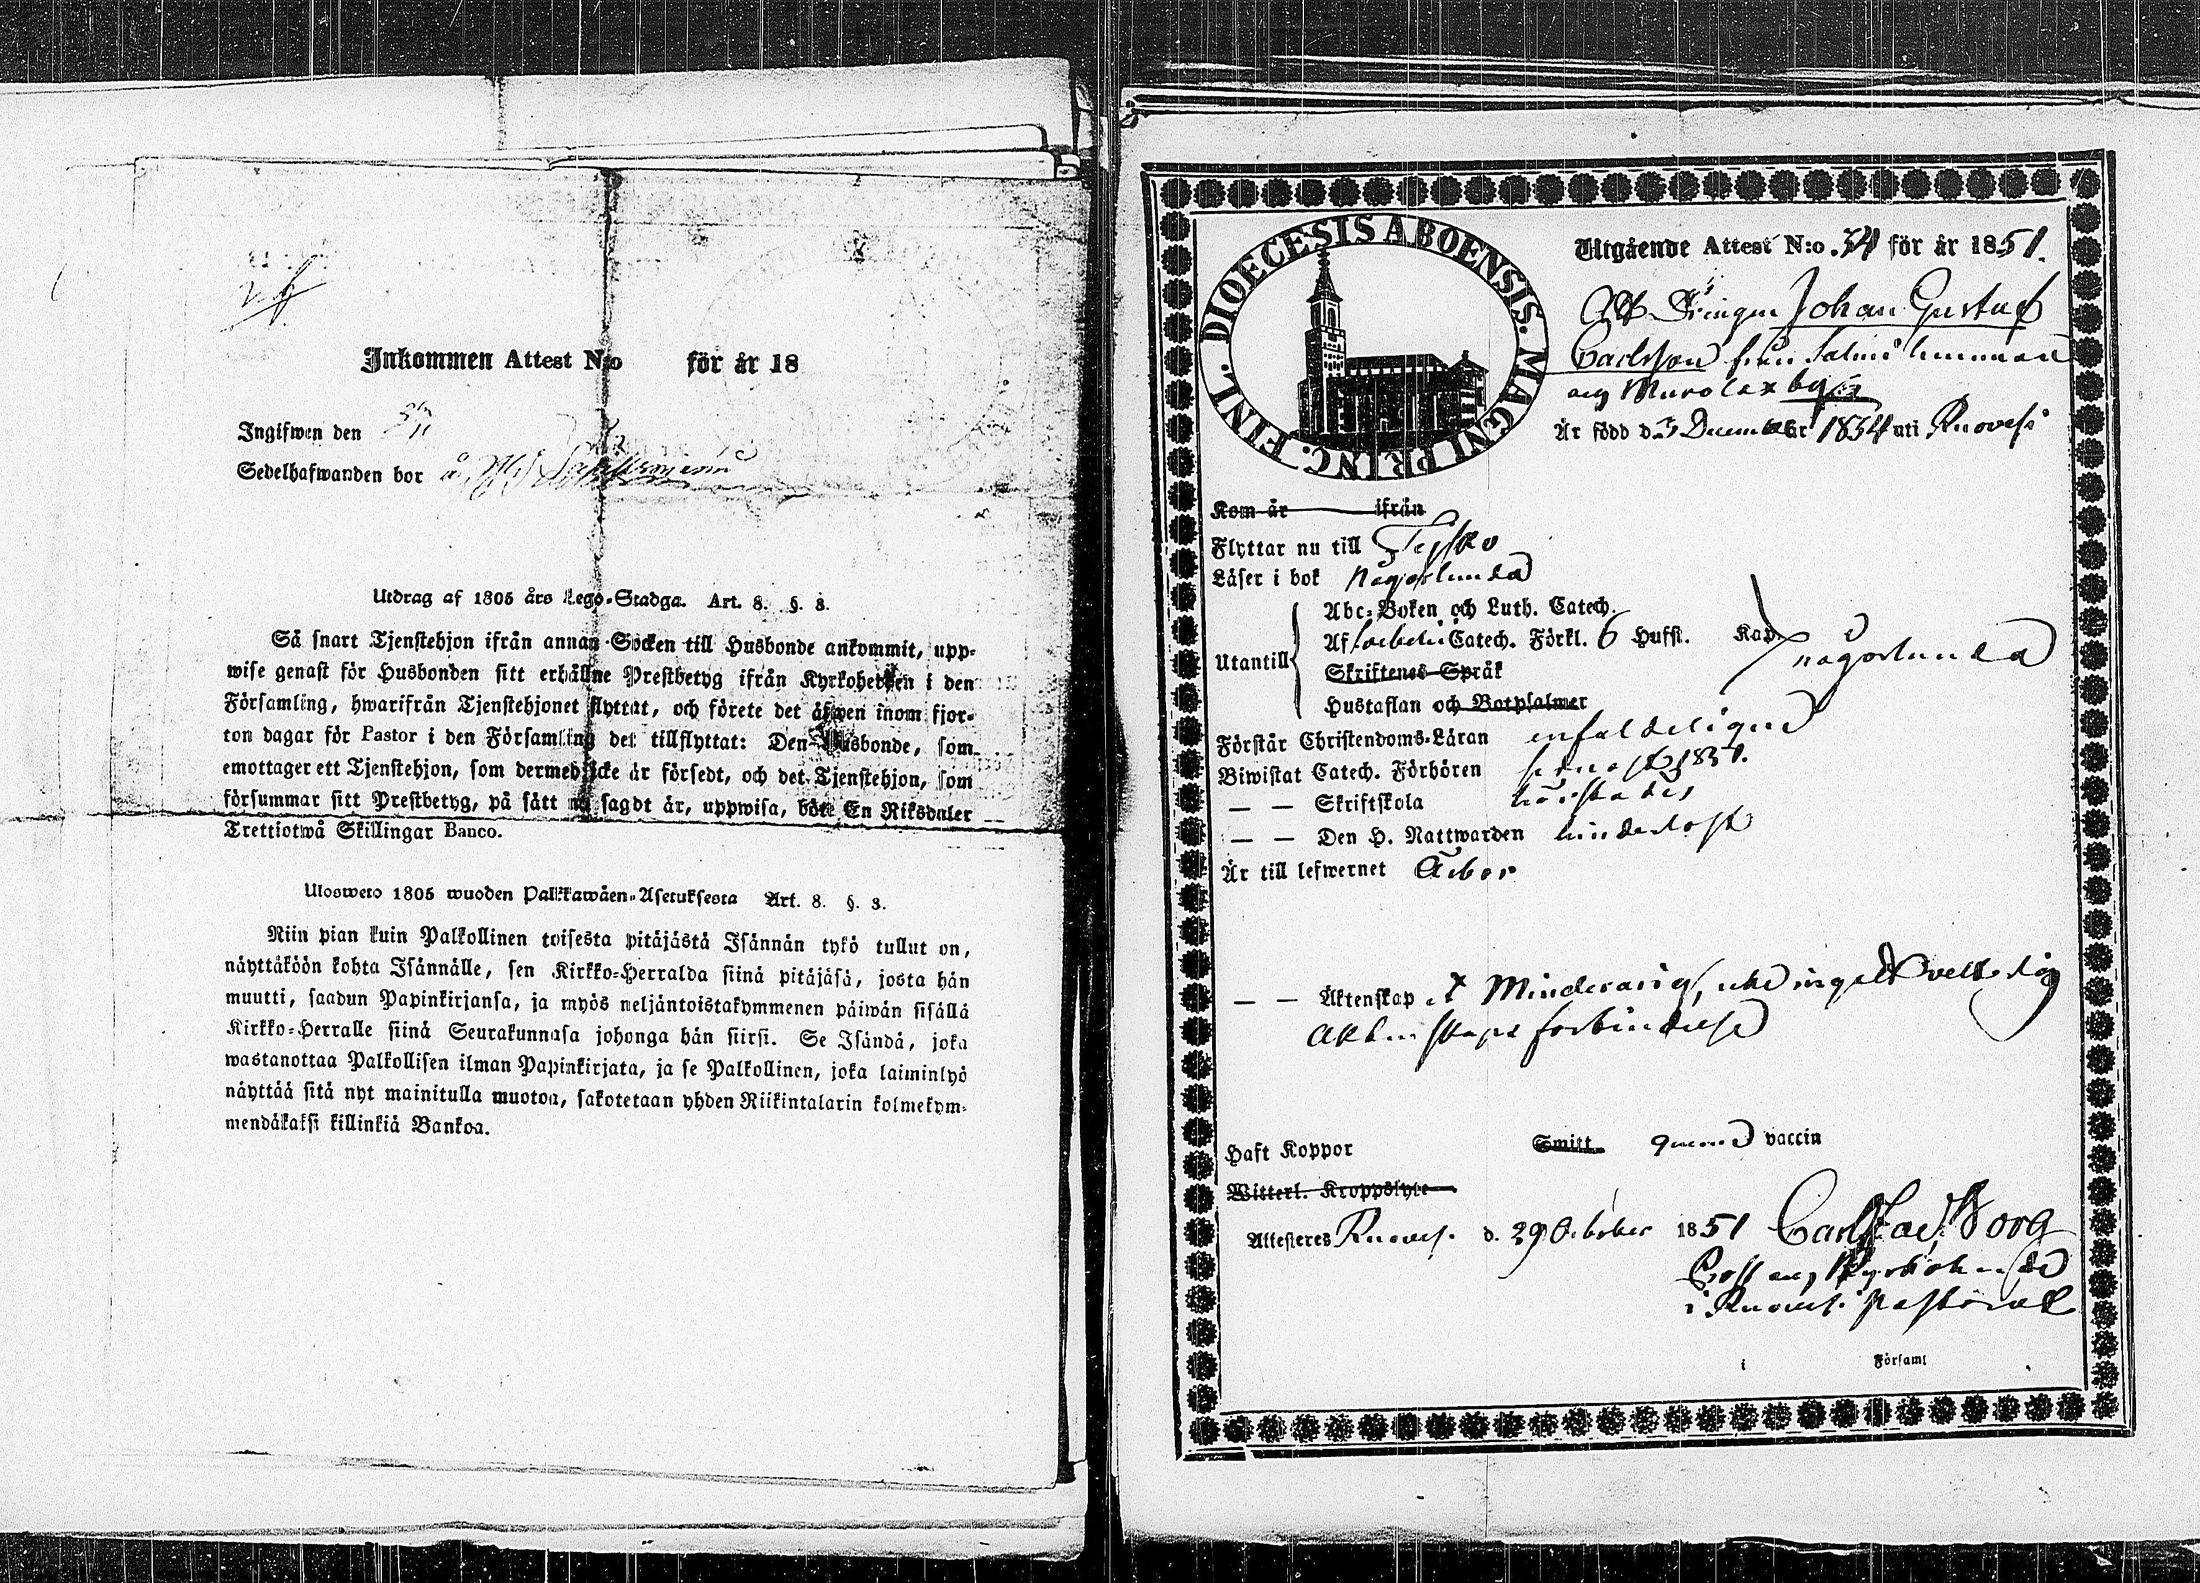 Inkommen Attest N:o för år 18
Ingifwen den
Sedelhafwanden bor å
Utdrag af 1805 års Lego-Stadga. Art. 8. §. 3.
Så snart Tjenstehjon ifrån annan Socken till Husbonde ankommit, upp-
wise genast för Husbonden sitt erhållne Prestbetyg ifrån Kyrkoherden i den
Församling, hwarifrån Tjenstehjonet flyttat, och förete det äfwen inom fjor-
ton dagar för Pastor i den Församling det tillflyttat: Den Husbonde, som
emottager ett Tjenstehjon, som dermed icke är försedt, och det Tjenstehjon, som
försummar sitt Prestbetyg, på sätt nu sagdt är, uppwisa, böte En Riksdaler
Trettiotwå Skillingar Banco.
Ulosweto 1805 wuoden Palkkawäen-Asetuksesta Art. 8. §. 3.
Niin pian kuin Palkollinen toisesta pitäjästä Isännän tykö tullut on,
näyttäköön kohta Isännälle, sen Kirkko-Herralda siinä pitäjäsä, josta hän
muutti, saadun Papinkirjansa, ja myös neljäntoistakymmenen päiwän sisällä
Kirkko-Herralle siinä Seurakunnasa johonga hän siirsi. Se Isändä, joka
wastanottaa Palkollisen ilman Papinkirjata, ja se Palkollinen, joka laiminlyö
näyttää sitä nyt mainitulla muotoa, sakotetaan yhden Riikintalarin kolmekym-
mendäkaksi killinkiä Bankoa.
DIOECESIS ABOENSIS. MAGNI PRINC. FINL.
Utgående Attest N:o 34 för år 1851.
Att Drängen Johan Gustaf
Carlsson från Salmi hemman
och Murolax by
Är född d. 3 December 1834 uti Ruovesi
Kom år ifrån
Flyttar nu till Teisko
Läser i bok någorlunda
Abc-Boken och Luth. Catech.
Utantill Af Catech. Förkl. 6 Hufst. Kap. någorlunda
Skriftenes Språk
Hustaflan och Botpsalmer
Förstår Christendoms-Läran enfaldeligen
Biwistat Catech. Förhören senast 1851.
— — Skriftskola
— — Den H. Nattwarden hinderlöst
Är till lefwernet
— — Äktenskap Minderårig, utan
Äktenskaps förbindelse
Haft Koppor Smitt. genom vaccin
Witterl. Kroppslyte
Attesteras Ruovesi d. 29 October 1851
Prost och Kyrkoherde
i Ruovesi Pastorat
i Församl